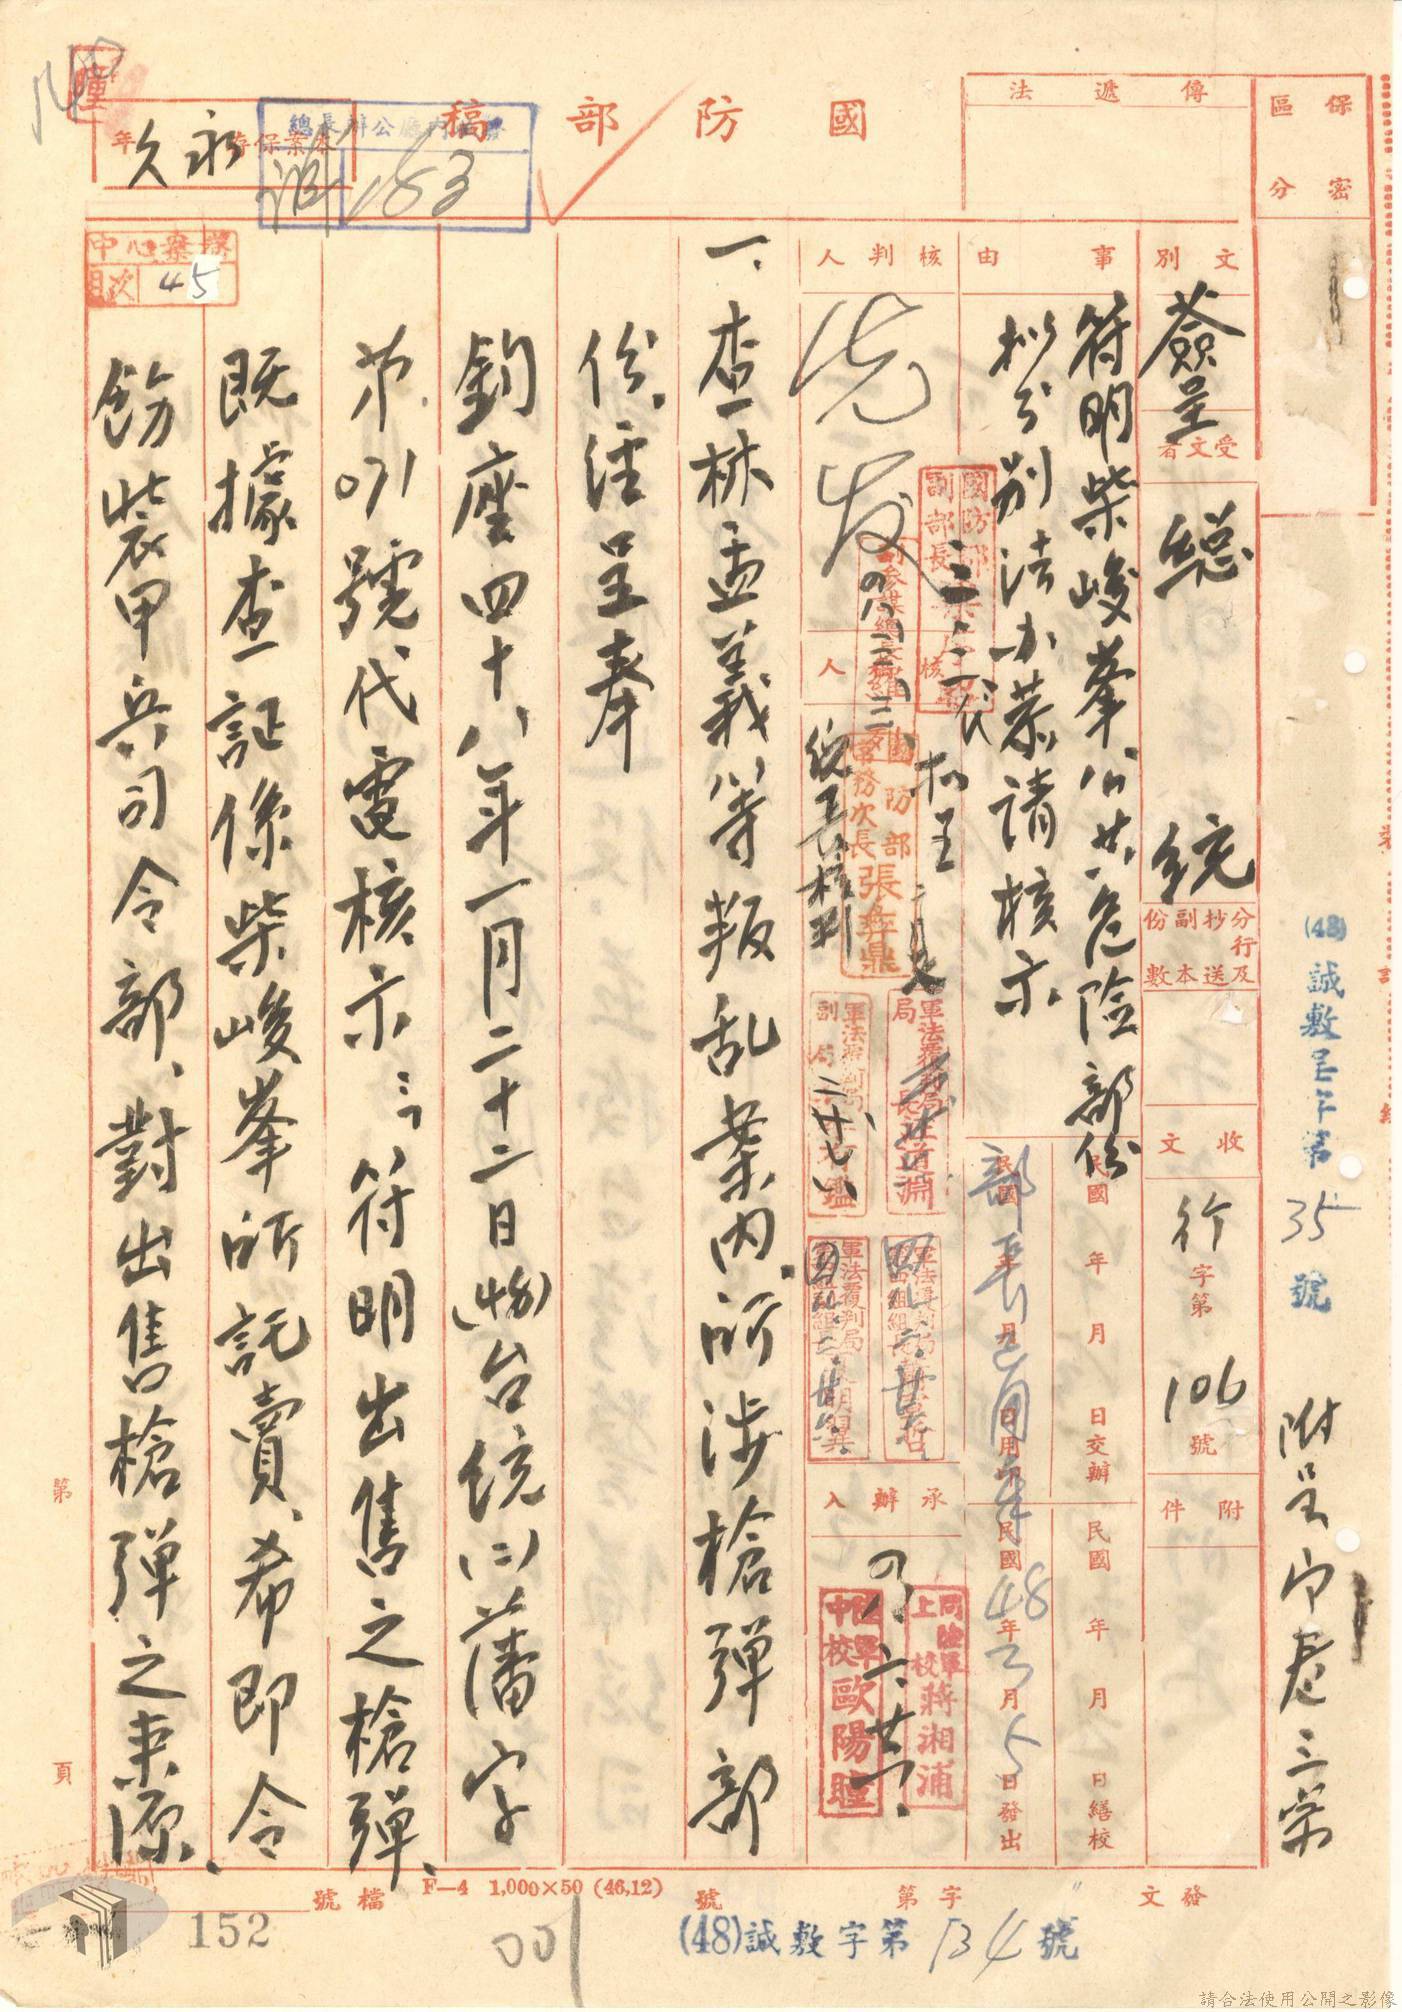 國防部稿
保密區分
傳遞法
本案保存 永久 年
總長辦公廳內
183
文別 簽呈
受文者 總統
分行及抄送副本份數
收文 行字第106號
附件
事由
符明柴峻峯公共危險部份
擬分別法办恭請核示
民國 年 月 日交辦
民國 年 月 日繕校
民國 年 月 日用印
民國48年3月5日發出
核判人
核人
承辦人
先发
國防部副部長
副參謀總長
國防部常務次長張彝鼎
軍法覆判局局長汪道淵
軍法覆判局副局長
同陸軍上校蔣湘浦
陸軍中校歐陽瞳
(48)誠敷呈字第35號
附呈印卷三宗
一、查林孟義等叛乱案内所涉槍弹部
份、經呈奉
鈞座四十八年一月二十二日(48)台统(二)藩字
第071號代電核示：符明出售之槍弹、
既據查証係柴峻峯所託賣、希即令
飭裝甲兵司令部、對出售槍弹之来源、
中心檔案
目次 45
第 頁
檔號
F—4 1,000×50 (46,12)
發文 字第 號
(48)誠敷字第134號
152
001
請合法使用公開之影像